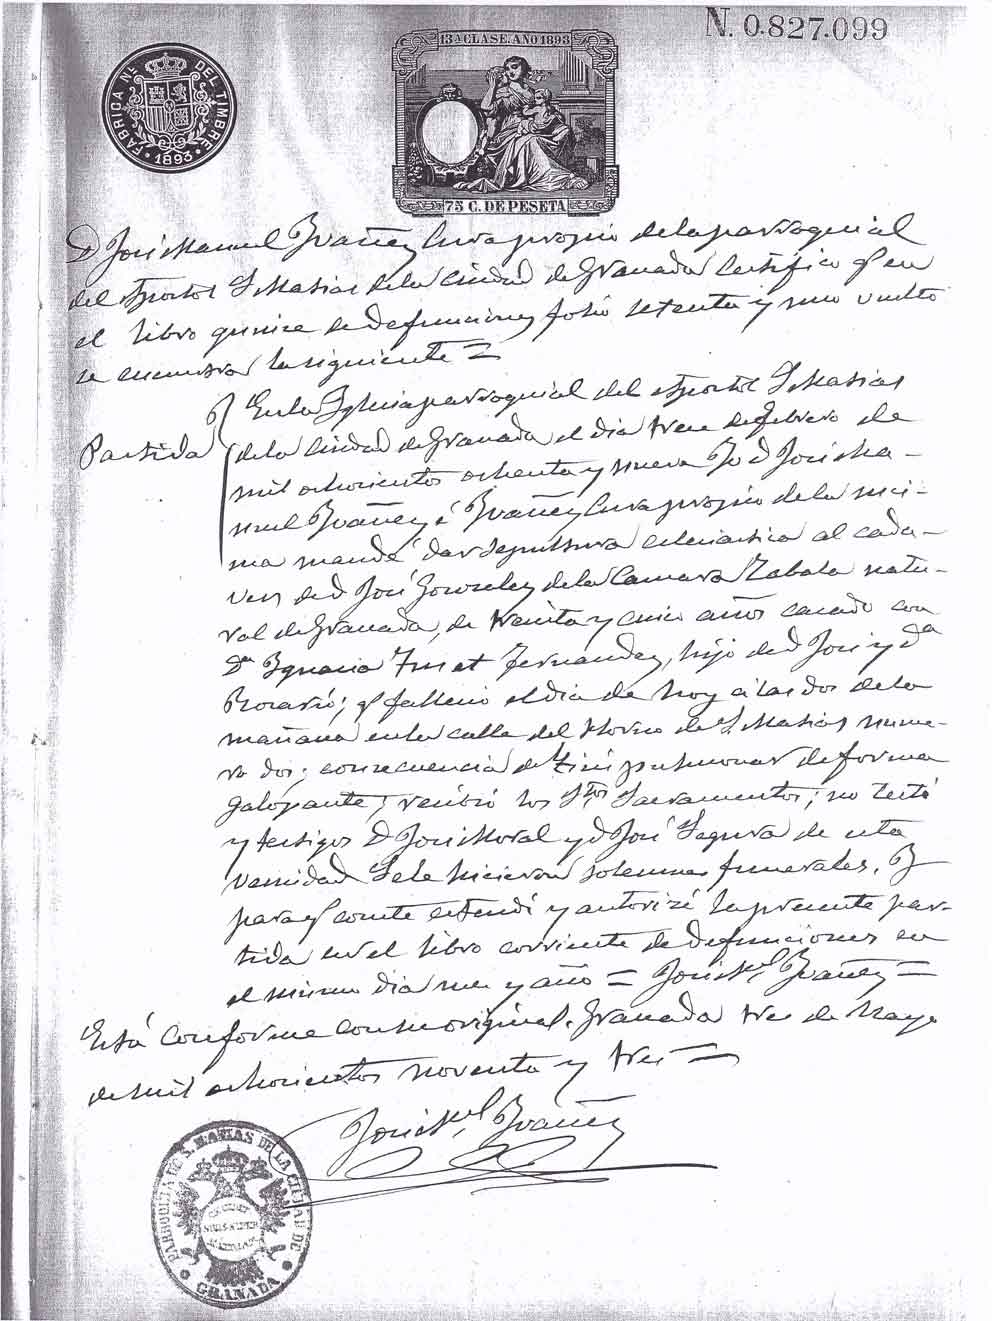 N. 0.827.099
13ª CLASE. AÑO 1893
FABRICA Nᴸ DEL TIMBRE
1893
75 C. DE PESETA
D José Manuel Ybañez Cura propio de la parroquial
del Apostol S Matias de la Ciudad de Granada Certifico q en
el libro quince de Defunciones folio setenta y uno vuelto
se encuentra la siguiente =
Partida
En la Yglesia parroquial del Apostol S Matias
de la Ciudad de Granada el dia trece de febrero de
mil ochocientos ochenta y nueve Yo D José Ma-
nuel Ybañez é Ybañez Cura propio de la mis-
ma mandé dar sepultura eclesiastica al cada-
ver de D José Gonzalez de la Camara Zabala natu-
ral de Granada, de treinta y cinco años casado con
Dª Ygnacia Fernandez, hijo de D José y Dª
Rosario; q fallecio el dia de hoy a las dos de la
mañana en la calle del Horno de S. Matias nume-
ro dos; consecuencia de Tisis pulmonar de forma
galopante; recibió los Stos Sacramentos; no testó
y testigos D José Moral y D José Segura de esta
vecindad Se le hicieron solemnes funerales. Y
para q conste estendí y autorizé la presente par-
tida en el libro corriente de Defunciones en
el mismo dia mes y año = José Mel Ybañez =
Está conforme con su original. Granada tres de Mayo
de mil ochocientos noventa y tres =
José Mel Ybañez
PARROQUIA DE S. MATIAS DE LA CIUDAD DE
GRANADA